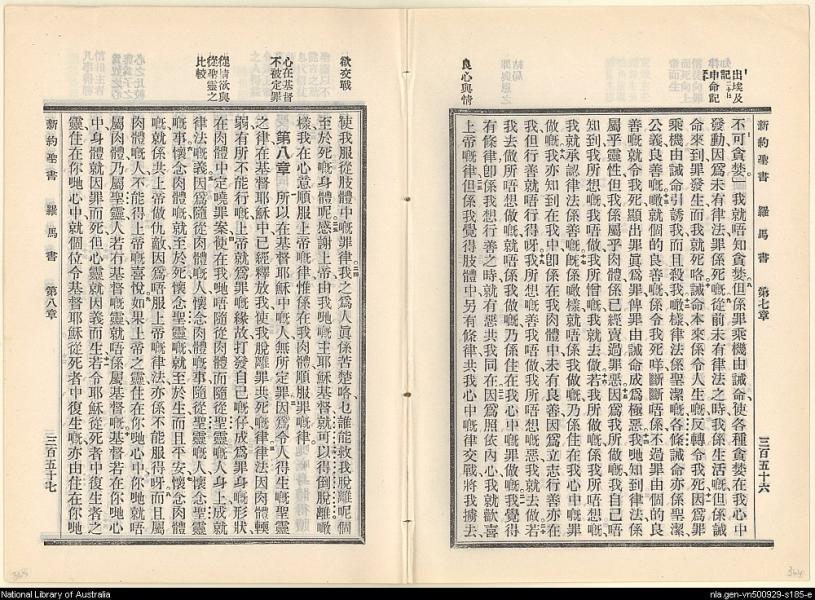 出埃及
記二十17
申命記
良心與情
新約聖書 羅馬書 第七章 三百五十六
不可貪婪、我就唔知貪婪、但係罪乘機由誡命、使各種貪婪在我心中
發動、因爲未有律法罪係死嘅、從前未有律法之時、我係生活嘅、但係誡
命來到、罪發生而我就死咯、誡命本來係令人生嘅、反轉令我死、因爲罪
乘機由誡命引誘我、而且殺我、噉樣律法係聖潔嘅、各條誡命亦係聖潔
公義良善嘅、噉就個的良善嘅、係令我死咩、斷斷唔係、不過罪由個的良
善嘅、就令我死、顯出罪眞爲罪、俾罪由誡命成爲極惡、我哋知到律法係
屬乎靈性、但我係屬乎肉體、係已經賣過罪惡、因爲我所做嘅、我自己唔
知到、我所想嘅、我唔做、我所憎嘅、我就去做、若我所做嘅、係我所唔想嘅、
我就承認律法係善嘅、噉樣就唔係我做嘅、乃係住在我心中嘅罪
做嘅、我亦知到在我中、卽係在我肉體中、未有良善、因爲立志行善亦在
我、但行善就唔行得呀、我所想嘅善、我唔做、我所唔想嘅惡、我就去做、若
我去做所唔想做嘅、就唔係我做嘅、乃係住在我心中嘅罪做嘅、我覺得
有條律、卽係我想行善之時、就有惡共我同在、因爲照依內心、我就歡喜
上帝嘅律、但係我覺得肢體中另有條律、共我心中嘅律交戰、將我擄去、
欲交戰
心在基督
不被定罪
從情欲與
從聖靈之
比較
使我服從肢體中嘅罪律、我之爲人眞係苦楚咯、乜誰能救我脫離呢個
至於死嘅身體呢、感謝上帝、由我哋嘅主耶穌基督就可以得倒脫離、噉
樣我在心意順服上帝嘅律、惟係在我肉體順服罪嘅律、
第八章 所以在基督耶穌中嘅人、無所定罪、因爲令人得生嘅聖靈
之律、在基督耶穌中已經釋放我、使我脫離罪共死嘅律、律法因肉體輭
弱、有所不能行嘅、上帝就爲罪嘅緣故、打發自己嘅仔、成爲罪身嘅形狀、
在肉體中定曉罪案、使在我哋唔隨從肉體、而隨從聖靈嘅人身上、成就
律法嘅義、因爲隨從肉體嘅人、懷念肉體嘅事、隨從聖靈嘅人、懷念聖靈
嘅事、懷念肉體嘅、就至於死、懷念聖靈嘅、就至於生而且平安、懷念肉體
嘅、就係共上帝做仇敵、因爲唔服上帝嘅律法、亦係不能服得呀、而且屬
肉體嘅人、不能得上帝嘅喜悅、如果上帝之靈住在你哋心中、你哋就唔
屬肉體、乃屬聖靈、人若冇基督嘅靈、就唔係屬基督嘅、基督若在你哋心
中、身體就因罪而死、但心靈就因義而生、若令耶穌從死者中復生者之
靈、住在你哋心中、就個位令基督耶穌從死者中復生嘅、亦由住在你哋
新約聖書 羅馬書 第八章 三百五十七
National Library of Australia
nla.gen-vn500929-s185-e